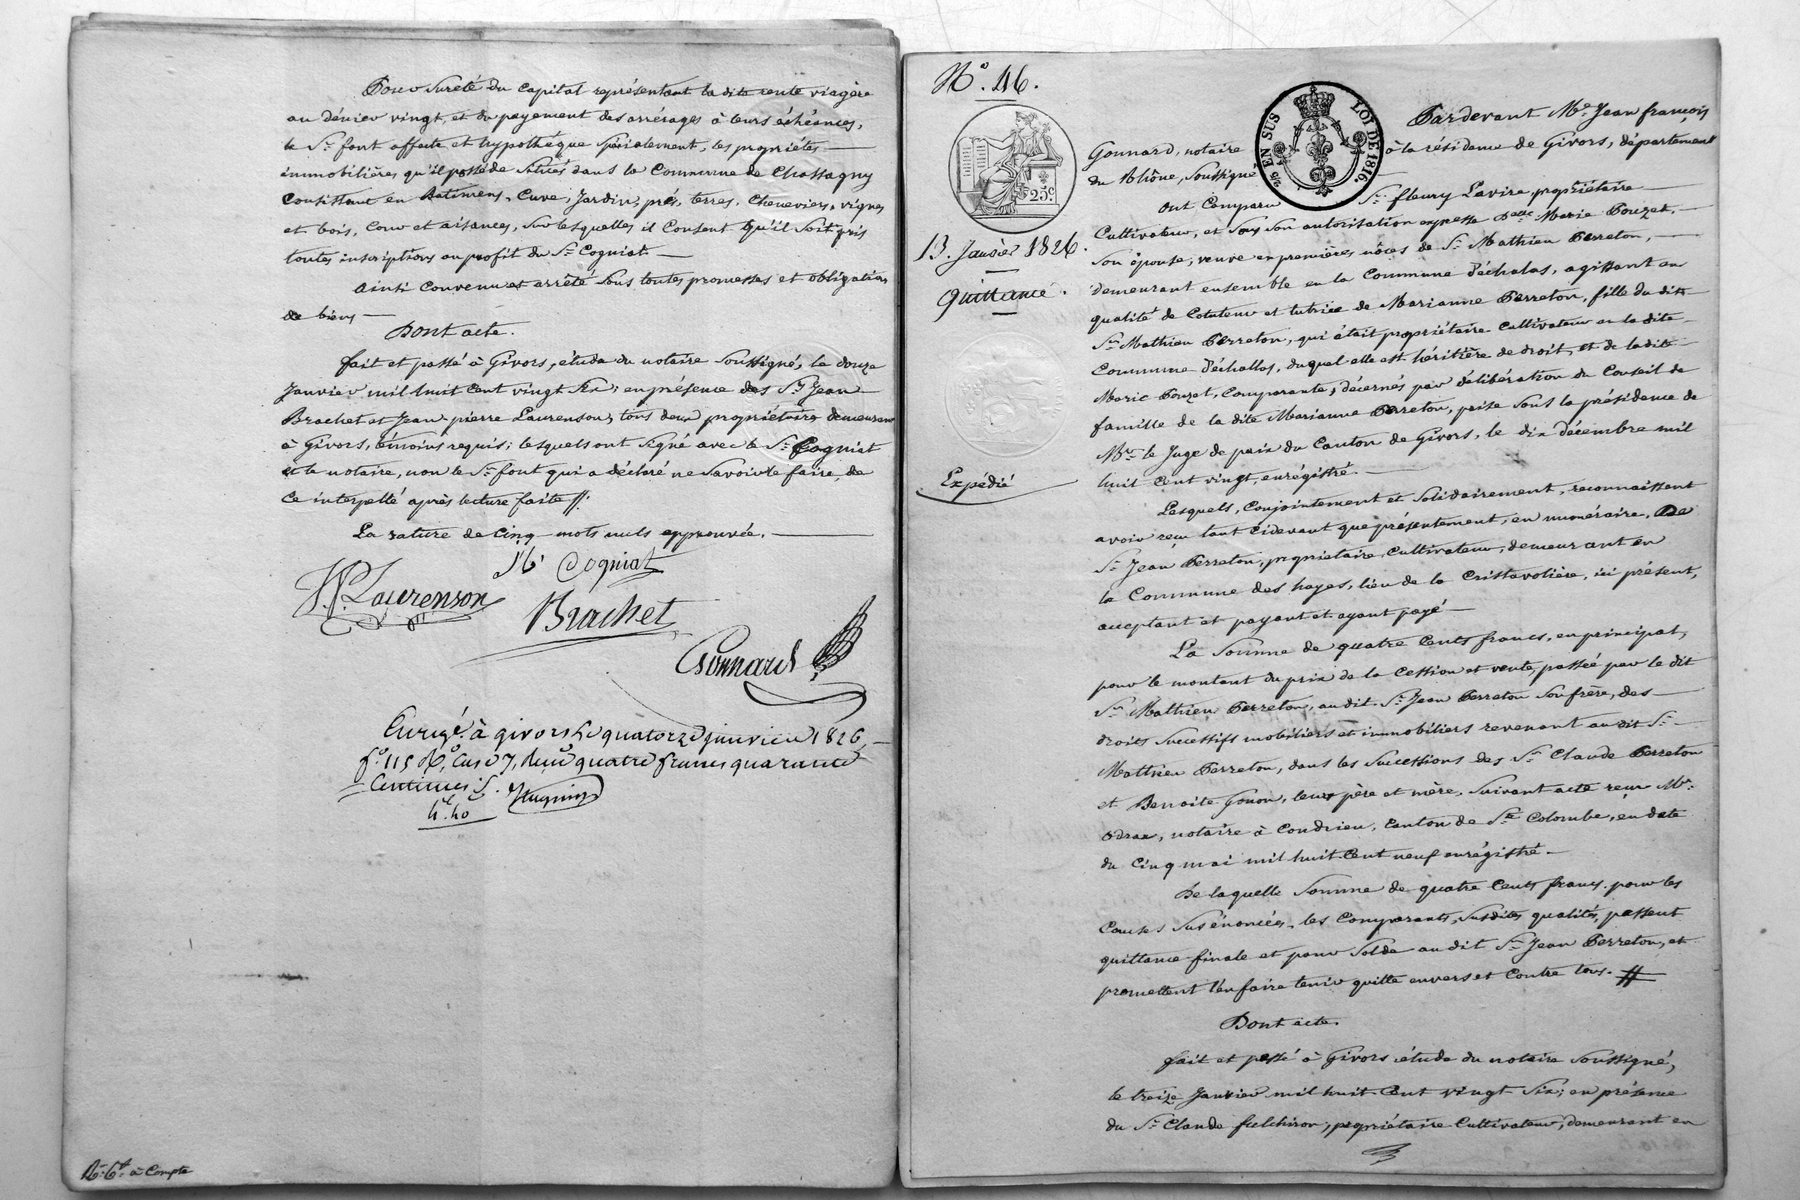 Pour sureté du capital représentant la dite rente viagère
au dénier vingt, et du payement des arrérages à leurs échéances,
le Sr. font affecte et hypothèque spécialement, les propriétés
immobilières qu'il possède situés dans la Commune de Chassagny
Consistant en Batimens, Cuve, Jardin, prés, terres, Cheneviers, vignes
et bois, Cour et aisances, sur lesquelles il Consent qu'il soit pris
toutes inscriptions au profit du Sr. Cogniat.
Ainsi Convenu et arrêté sous toutes promesses et obligation
de biens
Dont acte.
fait et passé à Givors, étude du notaire soussigné, le douze
Janvier mil huit Cent vingt six; en présence des Srs. Jean
Brachet et Jean pierre Laurenson, tous deux propriétaires demeurant
à Givors, témoins requis; lesquels ont signé avec le Sr. Cogniat
et le notaire, non le Sr. font qui a déclaré ne savoir le faire, de
Ce interpellé après lecture faite //.
La rature de Cinq mots nuls approuvée.
Cogniat
J.P. Laurenson
Brachet
Gonnard
Enregé. à givors le quatorze janvier 1826,
fo. 115 Ro, Case 7, Reçu quatre francs quarante
Centimes S.
4f.40
Rs. 6f. à Compte
No. 46.
EN SUS LOI DE 1816.
25c.
13. Janvier 1826.
Quittance.
Expédié
Pardevant Me. Jean françois
Gonnard, notaire à la résidence de Givors, département
du Rhône, soussigné
Ont Comparu Sr. fleury Lavire propriétaire
Cultivateur, et sous son autorisation expresse Delle. Marie Pouzet,
son épouse, veuve en premières nôces de Sr. Mathieu Perreton,
demeurant ensemble en la Commune d'échalas, agissant en
qualité de Cotuteur et tutrice de Marianne Perreton, fille du dit
Sr. Mathieu Perreton, qui était propriétaire Cultivateur en la dite
Commune d'échallas, duquel elle est héritière de droit, et de ladite
Marie Pouzet, Comparante, décernés par délibération du Conseil de
famille de la dite Marianne Perreton, prise sous la présidence de
Mr. le Juge de paix du Canton de Givors, le dix décembre mil
huit Cent vingt, enrégistré.
Lesquels, Conjointement et solidairement, reconnaissent
avoir reçu tant cidevant que présentement, en numéraire, De
Sr. Jean Perreton, propriétaire Cultivateur, demeurant en
la Commune des hayes, lieu de la Cristavolière, ici présent,
acceptant et payant et ayant payé
La Somme de quatre Cents francs, en principal,
pour le montant du prix de la Cession et vente, passée par le dit
Sr. Mathieu Perreton, au dit Sr. Jean Perreton son frère, des
droits successifs mobiliers et immobiliers revenant au dit Sr.
Mathieu Perreton, dans les successions des Srs. Claude Perreton
et Benoite Gonon, leurs père et mère, suivant acte reçu Me.
Odrae, notaire à Condrieu, Canton de Ste. Colombe, en date
du Cinq mai mil huit Cent neuf enrégistré.
De laquelle Somme de quatre Cents francs pour les
Causes susénoncées, les Comparants, susdites qualités, passent
quittance finale et pour solde au dit Sr. Jean Perreton, et
promettent l'en faire tenir quitte envers et Contre tous. //
Dont acte.
fait et passé à Givors étude du notaire soussigné,
le treize Janvier mil huit Cent vingt Six; en présence
du Sr. Claude fulchiron, propriétaire Cultivateur, demeurant en